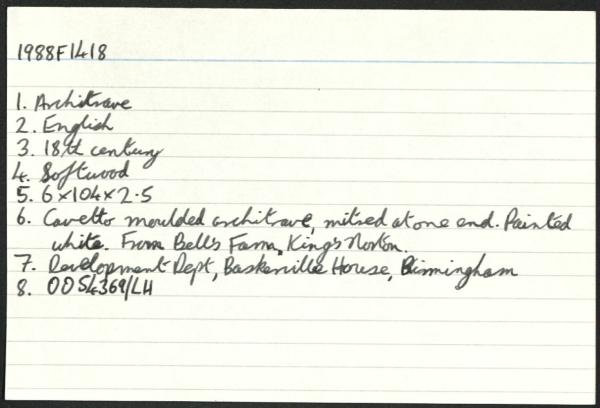 1988F1418
1. Architrave
2. English
3. 18th century
4. Softwood
5. 6×104×2·5
6. Cavetto moulded architrave, mitred at one end. Painted
white. From Bells Farm, Kings Norton.
7. Development Dept, Baskerville House, Birmingham
8. 0054369/LH